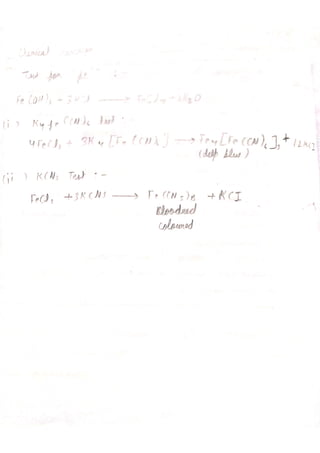 Chemical
Test for Fe :-
Fe(OH)3 + 3HCl → FeCl3 + 3H2O
(i) K4Fe(CN)6 test :-
4FeCl3 + 3K4[Fe(CN)6] → Fe4[Fe(CN)6]3 + 12KCl
(deep blue)
(ii) KCNS Test :-
FeCl3 + 3KCNS → Fe(CNS)3 + KCl
Bloodred
coloured